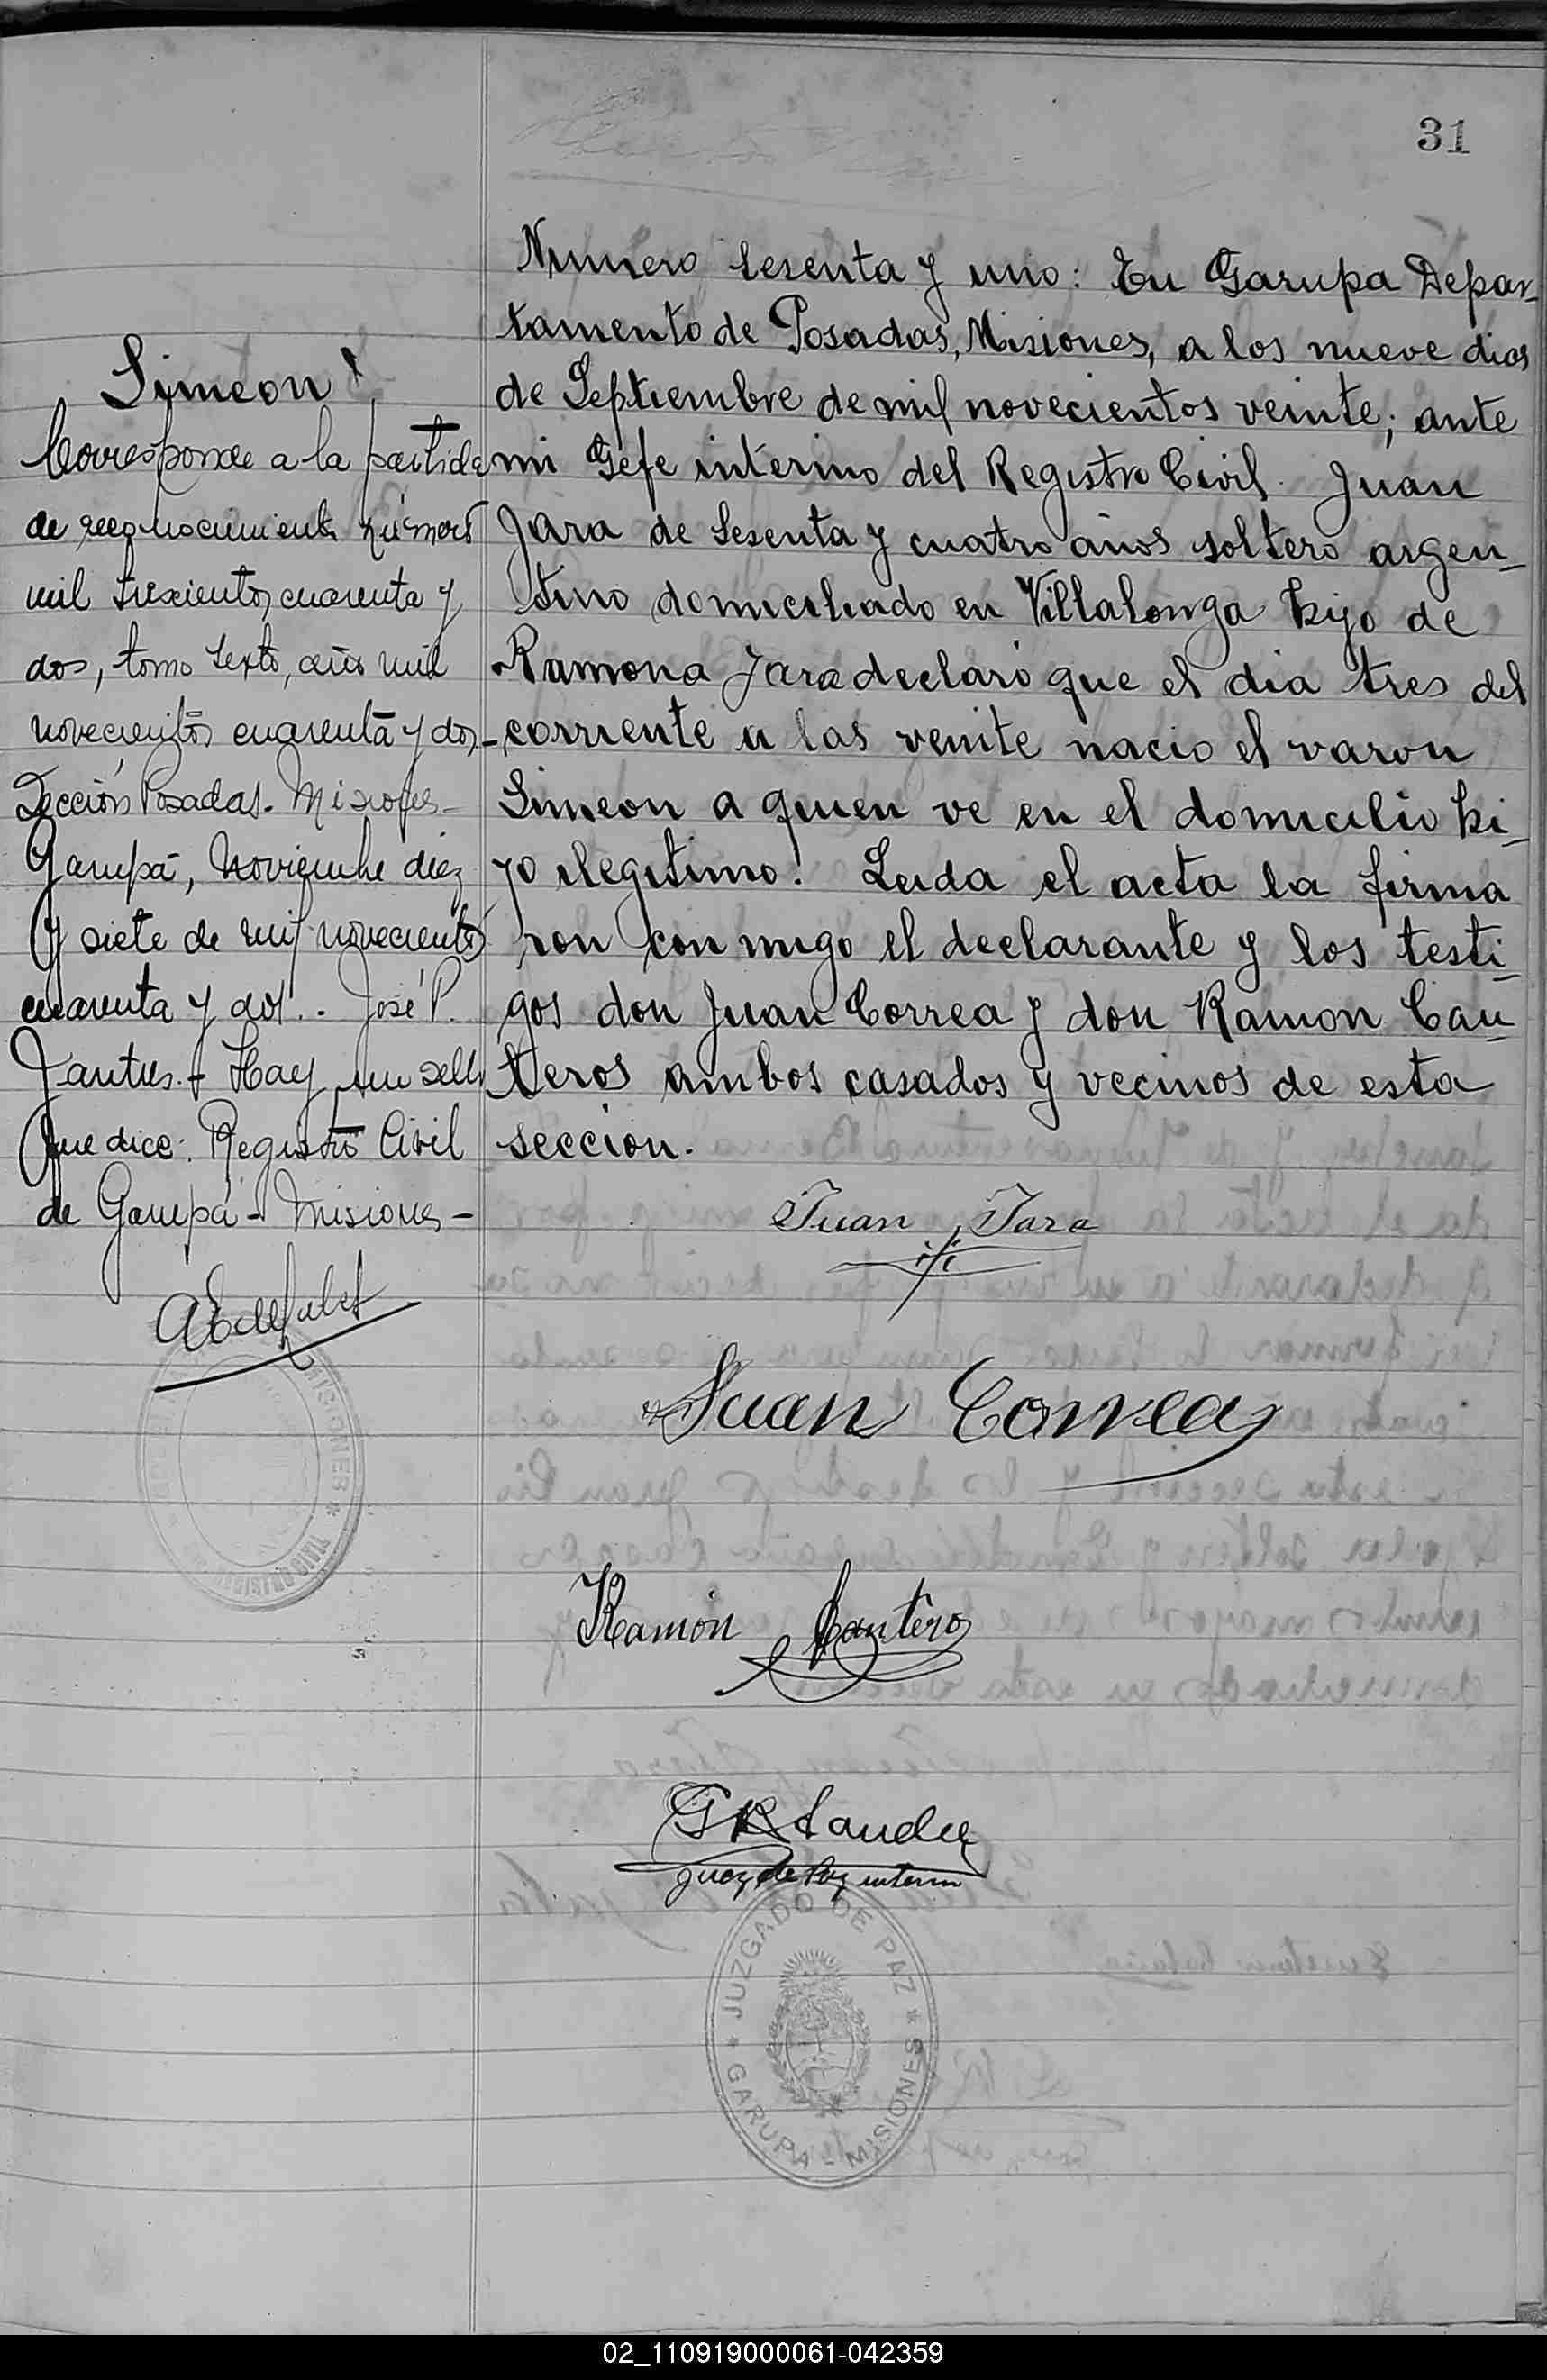 31
Numero sesenta y uno: En Garupa Depar-
tamento de Posadas, Misiones, a los nueve dias
de Septiembre de mil novecientos veinte; ante
mi Gefe interino del Registro Civil. Juan
Jara de sesenta y cuatro años soltero argen-
tino domiciliado en Villalonga hijo de
Ramona Jara declaró que el dia tres del
corriente a las veinte nacio el varon
Simeon a quien ve en el domicilio hi-
jo ilegitimo. Leida el acta la firma
ron conmigo el declarante y los testi-
gos don Juan Correa y don Ramon Can-
teros ambos casados y vecinos de esta
seccion.
Juan Jara
Juan Correa
Ramón Cantero
Juez de Paz interin
JUZGADO DE PAZ
GARUPA - MISIONES
Simeon
Corresponde a la partida
de reconocimiento número
mil trescientos cuarenta y
dos, tomo sexto, año mil
novecientos cuarenta y dos-
Sección Posadas. Misiones-
Garupá, Noviembre diez
y siete de mil novecientos
cuarenta y dos.- José P.
Hay un sello
que dice: Registro Civil
de Garupá - Misiones -
MISIONES
REGISTRO CIVIL
02_110919000061-042359